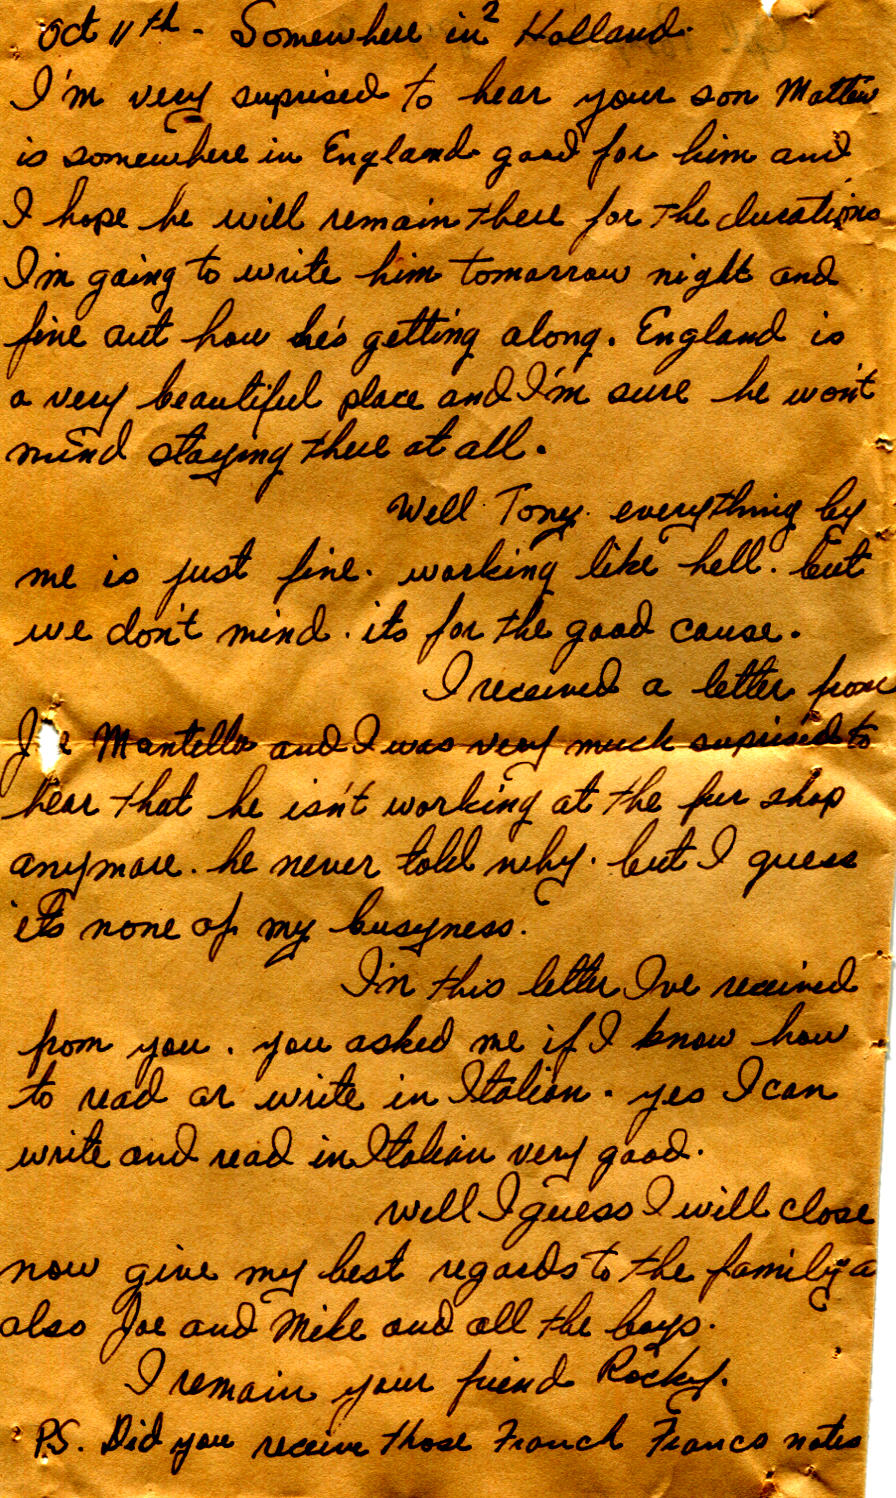 Oct 11th. Somewhere in 2 Holland.
I'm very suprised to hear your son Mattew
is somewhere in England good for him and
I hope he will remain there for the durations
I'm going to write him tomorrow night and
fine out how he's getting along. England is
a very beautiful place and I'm sure he won't
mind staying there at all.
Well Tony everything by
me is just fine. working like hell. but
we don't mind. its for the good cause.
I received a letter from
Mantello and I was very much suprised to
hear that he isn't working at the fur shop
anymore. he never told why. but I guess
its none of my busyness.
In this letter I've received
from you. you asked me if I know how
to read or write in Italian. yes I can
write and read in Italian very good.
well I guess I will close
now give my best regards to the family a
also Joe and Mike and all the boys.
I remain your friend Rocky.
P.S. Did you receive those Franch Franco notes